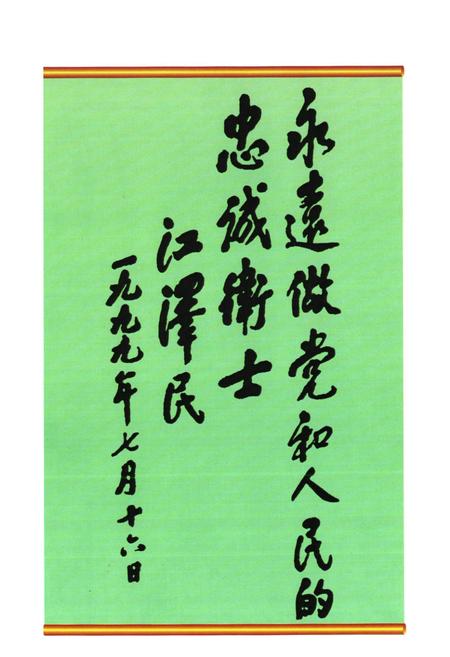 永遠做党和人民的
忠誠衛士
江澤民
一九九九年七月十六日